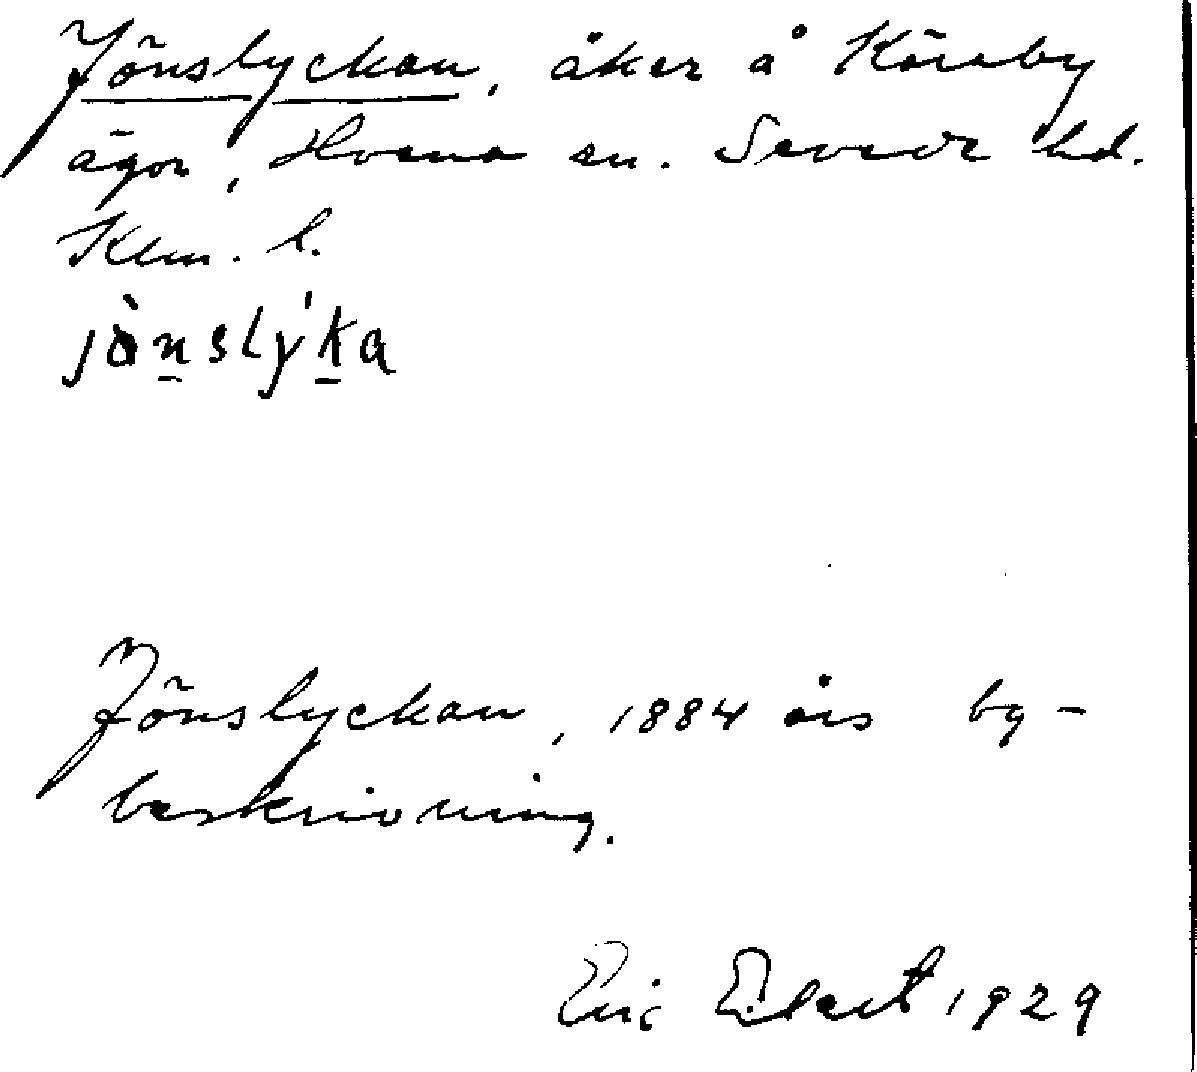 Jönslyckan, åker å Käreby
ägor, Hvena sn. Sevede hd.
Klm. l.
jò̈nslýka
Jönslyckan, 1884 års by-
beskrivning.
Eric Elert 1929